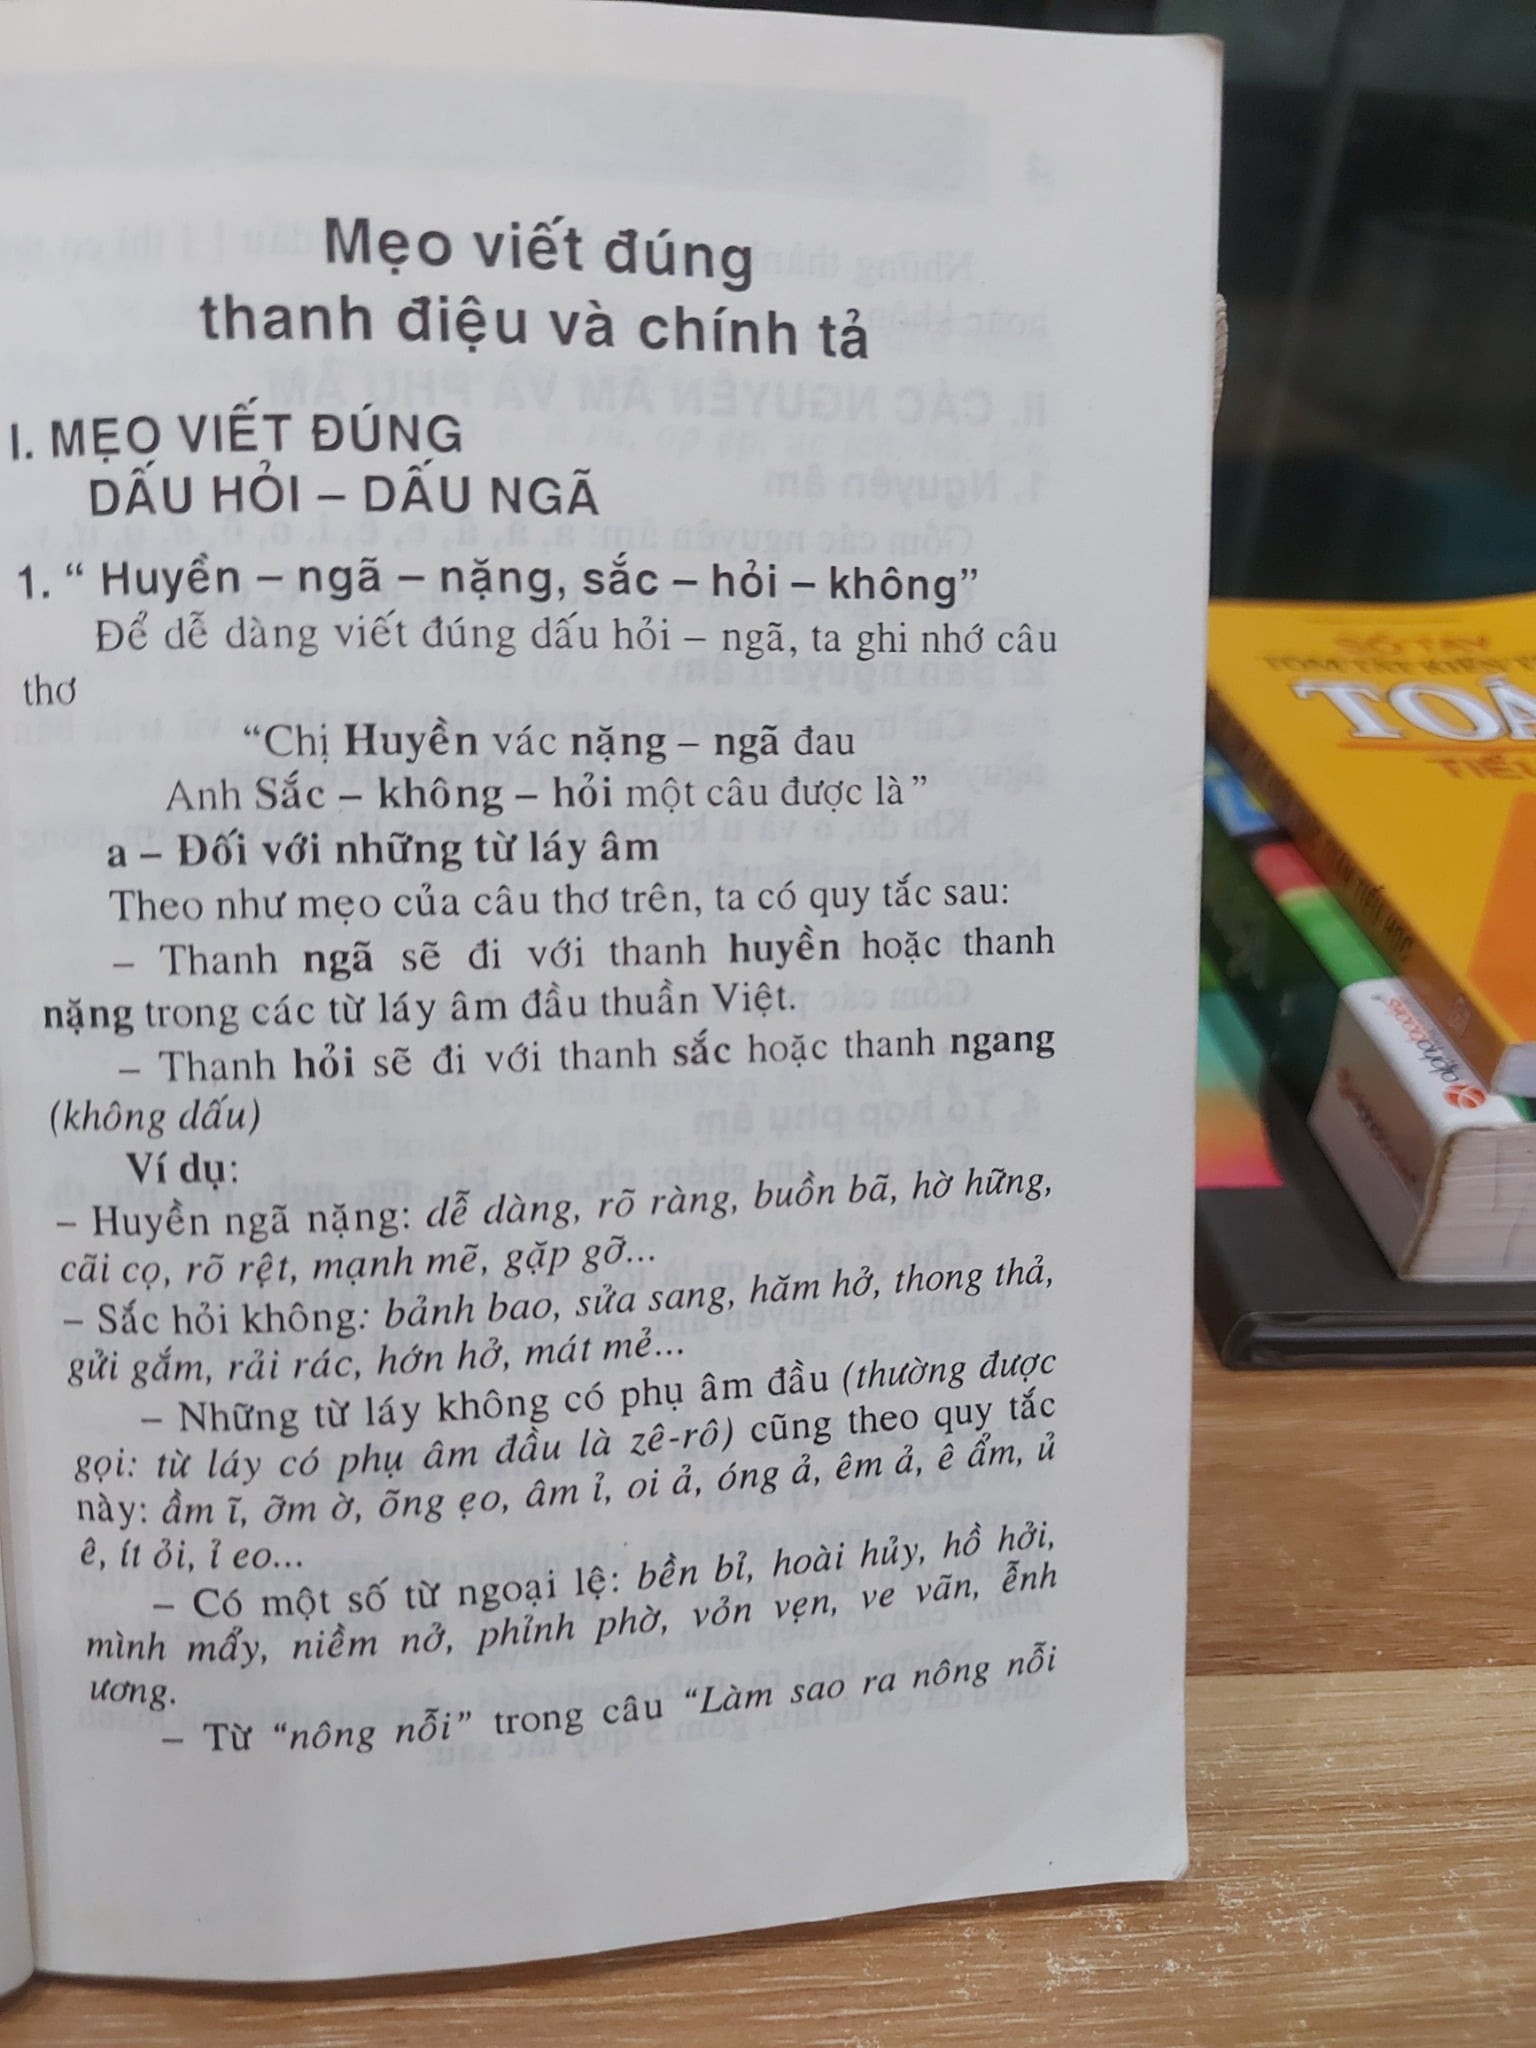 Mẹo viết đúng
thanh điệu và chính tả
I. MẸO VIẾT ĐÚNG
DẤU HỎI – DẤU NGÃ
1. “ Huyền – ngã – nặng, sắc – hỏi – không”
Để dễ dàng viết đúng dấu hỏi – ngã, ta ghi nhớ câu
thơ
“Chị Huyền vác nặng – ngã đau
Anh Sắc – không – hỏi một câu được là”
a – Đối với những từ láy âm
Theo như mẹo của câu thơ trên, ta có quy tắc sau:
– Thanh ngã sẽ đi với thanh huyền hoặc thanh
nặng trong các từ láy âm đầu thuần Việt.
– Thanh hỏi sẽ đi với thanh sắc hoặc thanh ngang
(không dấu)
Ví dụ:
– Huyền ngã nặng: dễ dàng, rõ ràng, buồn bã, hờ hững,
cãi cọ, rõ rệt, mạnh mẽ, gặp gỡ...
– Sắc hỏi không: bảnh bao, sửa sang, hăm hở, thong thả,
gửi gắm, rải rác, hớn hở, mát mẻ...
– Những từ láy không có phụ âm đầu (thường được
gọi: từ láy có phụ âm đầu là zê-rô) cũng theo quy tắc
này: ầm ĩ, ỡm ờ, õng ẹo, âm ỉ, oi ả, óng ả, êm ả, ê ẩm, ủ
ê, ít ỏi, ỉ eo...
– Có một số từ ngoại lệ: bền bỉ, hoài hủy, hồ hởi,
mình mẩy, niềm nở, phỉnh phờ, vỏn vẹn, ve vãn, ễnh
ương.
– Từ “nông nỗi” trong câu “Làm sao ra nông nỗi
SỔ TAY
TOÁ
TIỂU
alphabooks